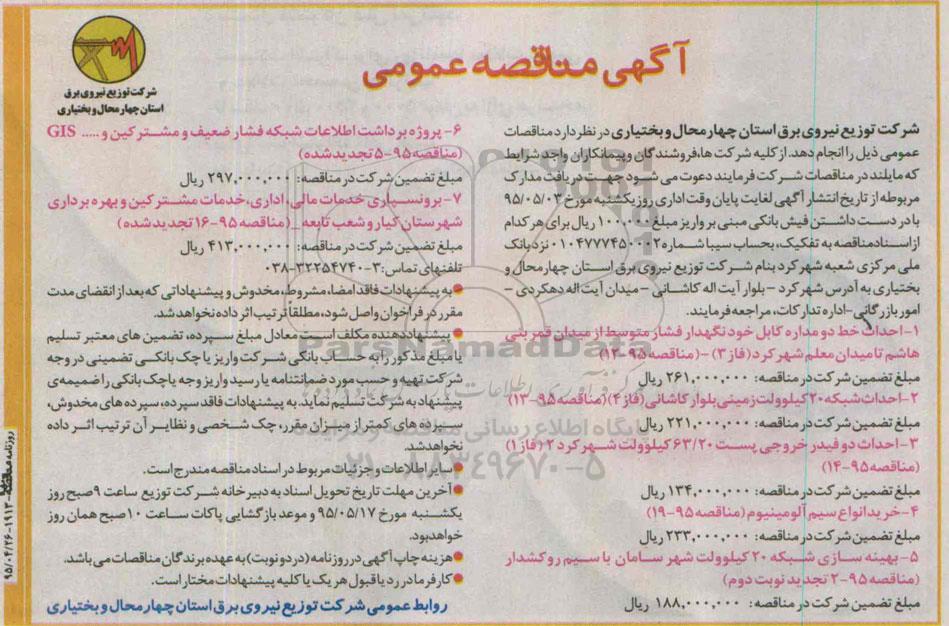 آگهی مناقصه عمومی
شرکت توزیع نیروی برق
استان چهارمحال و بختیاری
شرکت توزیع نیروی برق استان چهارمحال و بختیاری در نظر دارد مناقصات
عمومی ذیل را انجام دهد. از کلیه شرکت ها، فروشندگان و پیمانکاران واجد شرایط
که مایلند در مناقصات شرکت فرمایند دعوت می شود جهت دریافت مدارک
مربوطه از تاریخ انتشار آگهی لغایت پایان وقت اداری روز یکشنبه مورخ ۹۵/۰۵/۰۳
با در دست داشتن فیش بانکی مبنی بر واریز مبلغ ۱۰۰۰۰۰ ریال برای هر کدام
از اسناد مناقصه به تفکیک، بحساب سیبا شماره ۰۱۰۴۷۷۷۴۵۰۰۰۲ نزد بانک
ملی مرکزی شعبه شهرکرد بنام شرکت توزیع نیروی برق استان چهارمحال و
بختیاری به آدرس شهرکرد - بلوار آیت اله کاشانی - میدان آیت اله دهکردی -
امور بازرگانی - اداره تدارکات، مراجعه فرمایند.
۱- احداث خط دو مداره کابل خود نگهدار فشار متوسط از میدان قمر بنی
هاشم تا میدان معلم شهرکرد (فاز ۳) - (مناقصه ۹۵-۱۲)
مبلغ تضمین شرکت در مناقصه: ۲۶۱,۰۰۰,۰۰۰ ریال
۲- احداث شبکه ۲۰ کیلوولت زمینی بلوار کاشانی (فاز ۴) (مناقصه ۹۵-۱۳)
مبلغ تضمین شرکت در مناقصه: ۲۲۱,۰۰۰,۰۰۰ ریال
۳- احداث دو فیدر خروجی پست ۶۳/۲۰ کیلوولت شهرکرد ۲ (فاز ۱)
(مناقصه ۹۵-۱۴)
مبلغ تضمین شرکت در مناقصه: ۱۳۴,۰۰۰,۰۰۰ ریال
۴- خرید انواع سیم آلومینیوم (مناقصه ۹۵-۱۹)
مبلغ تضمین شرکت در مناقصه: ۲۳۳,۰۰۰,۰۰۰ ریال
۵- بهینه سازی شبکه ۲۰ کیلوولت شهر سامان با سیم روکشدار
(مناقصه ۹۵-۲ تجدید نوبت دوم)
مبلغ تضمین شرکت در مناقصه: ۱۸۸,۰۰۰,۰۰۰ ریال
۶- پروژه برداشت اطلاعات شبکه فشار ضعیف و مشترکین و ..... GIS
(مناقصه ۹۵-۵ تجدید شده)
مبلغ تضمین شرکت در مناقصه: ۲۹۷,۰۰۰,۰۰۰ ریال
۷- برونسپاری خدمات مالی، اداری، خدمات مشترکین و بهره برداری
شهرستان کیار و شعب تابعه - (مناقصه ۹۵-۱۶ تجدید شده)
مبلغ تضمین شرکت در مناقصه: ۴۱۳,۰۰۰,۰۰۰ ریال
تلفنهای تماس: ۳-۳۲۲۵۴۷۴۰-۰۳۸
● به پیشنهادات فاقد امضا، مشروط، مخدوش و پیشنهاداتی که بعد از انقضای مدت
مقرر در فراخوان واصل شود، مطلقاً ترتیب اثر داده نخواهد شد.
● پیشنهاد دهنده مکلف است معادل مبلغ سپرده، تضمین های معتبر تسلیم
یا مبلغ مذکور را به حساب بانکی شرکت واریز یا چک بانکی تضمینی در وجه
شرکت تهیه و حسب مورد ضمانتنامه یا رسید واریز وجه یا چک بانکی را ضمیمه ی
پیشنهاد به شرکت تسلیم نماید. به پیشنهادات فاقد سپرده، سپرده های مخدوش،
سپرده های کمتر از میزان مقرر، چک شخصی و نظایر آن ترتیب اثر داده
نخواهد شد.
● سایر اطلاعات و جزئیات مربوط در اسناد مناقصه مندرج است.
● آخرین مهلت تاریخ تحویل اسناد به دبیرخانه شرکت توزیع ساعت ۹ صبح روز
یکشنبه مورخ ۹۵/۰۵/۱۷ و موعد بازگشایی پاکات ساعت ۱۰ صبح همان روز
خواهد بود.
● هزینه چاپ آگهی در روزنامه (در دو نوبت) به عهده برندگان مناقصات می باشد.
● کارفرما در رد یا قبول هر یک یا کلیه پیشنهادات مختار است.
روابط عمومی شرکت توزیع نیروی برق استان چهارمحال و بختیاری
روزنامه مناقصه-۱۹۱۳-۹۵/۰۴/۲۶
ParsNamadData
پایگاه اطلاع رسانی مناقصه و مزایده
۰۲۱-۸۸۳۴۹۶۷۰-۵